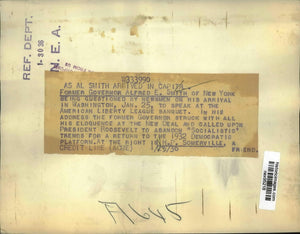 REF. DEPT.
1-30 36
N. E. A.
W333990
AS AL SMITH ARRIVED IN CAPITAL
FORMER GOVERNOR ALFRED E. SMITH OF NEW YORK
BEING QUESTIONED BY NEWSMEN ON HIS ARRIVAL
IN WASHINGTON, JAN. 25, TO SPEAK AT THE
AMERICAN LIBERTY LEAGUE BANQUET. IN HIS
ADDRESS THE FORMER GOVERNOR STRUCK WITH ALL
HIS ELOQUENCE AT THE NEW DEAL AND CALLED UPON
PRESIDENT ROOSEVELT TO ABANDON "SOCIALISTIC"
TRENDS FOR A RETURN TO THE 1932 DEMOCRATIC
PLATFORM. AT THE RIGHT IS SOMERVILLE, A
CREDIT LINE (ACME) 1/25/36 FRIEND.